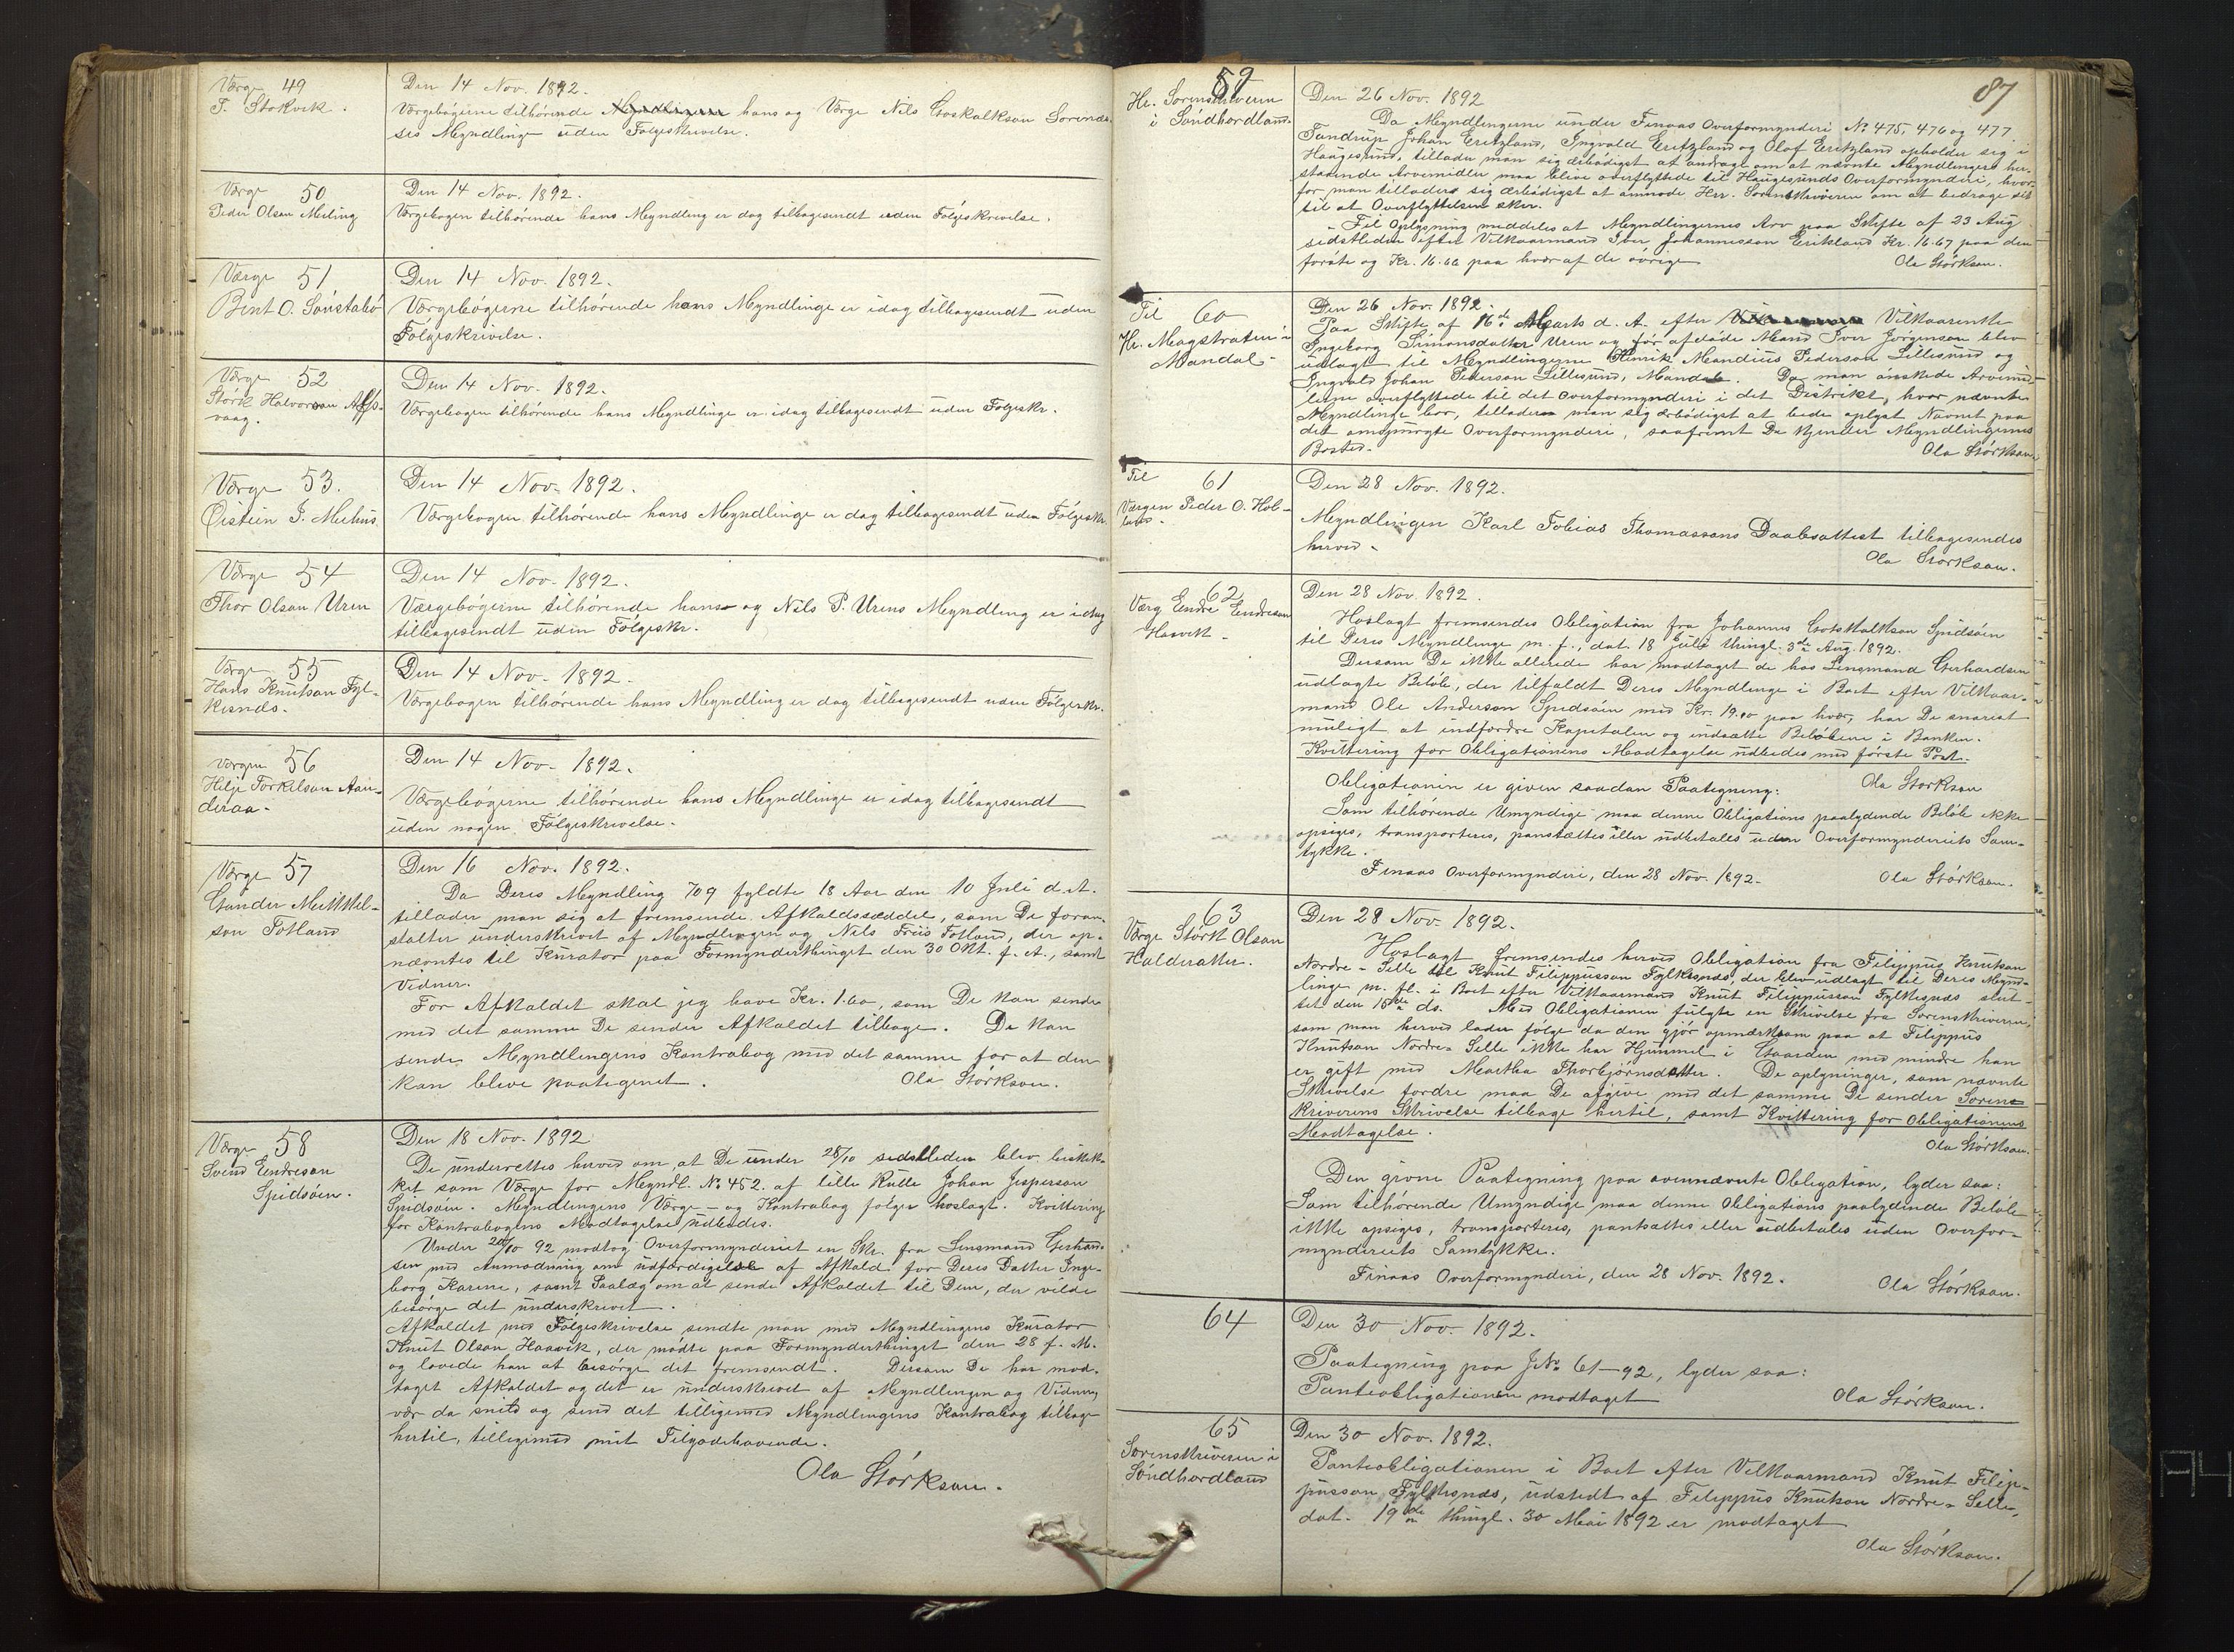 Værge 49
T. Stokvik.
Den 14 Nov. 1892.
Værgebøgerne tilhørende hans og Værge Nils Goskalksøn
ses Myndlinge uden Følgeskrivelse.
Værge 50
Peder Olsen Meling
Den 14 Nov. 1892.
Værgebogen tilhørende hans Myndling er dag tilbagesendt uden Følgeskrivelse.
Værge 51
Bent O. Sønstabø
Den 14 Nov. 1892.
Værgebøgerne tilhørende hans Myndlinge er idag tilbagesendt uden
Følgeskrivelse.
Værge 52
Størk Halvorson Alfs-
vaag.
Den 14 Nov. 1892.
Værgebogen tilhørende hans Myndlinge er idag tilbagesendt uden Følgeskr.
Værge 53.
Østein J. Mehus
Den 14 Nov. 1892.
Værgebogen tilhørende hans Myndlinge er dag tilbagesendt uden Følgeskr.
Værge 54
Thor Olson Uren
Den 14 Nov. 1892.
Værgebøgerne tilhørende hans og Nils P. Urens Myndling er idag
tilbagesendt uden Følgeskr.
Værge 55
Hans Knutson Fyl-
kesnæs.
Den 14 Nov. 1892.
Værgebogen tilhørende hans Myndling er dag tilbagesendt uden Følgeskr.
Værgen 56
Helje Torkelson Aan-
deraa.
Den 14 Nov. 1892.
Værgebøgerne tilhørende hans Myndlinge er idag tilbagesendt
uden nogen Følgeskrivelse.
Værge 57
Gunder Mikkel-
son Totland
Den 16 Nov. 1892.
Da Deres Myndling 709 fyldte 18 Aar den 10 Juli d. A.
tillader man sig at fremsende Afkaldsseddel, som De foran-
stalter underskrevet af Myndlingen og Nils Friis Totland, der op-
nævntes til Kurator paa Formynderthinget den 30 Okt. f. A., samt
Vidner.
For Afkaldet skal jeg have Kr. 1.60, som De kan sende
med det samme De sender Afkaldet tilbage. De kan
sende Myndlingens Kontrabog med det samme for at den
kan blive paategnet. Ola Størkson.
Værge 58
Svend Endreson
Spidsøen.
Den 18 Nov. 1892
De underrettes herved om, at De under 28/10 sidstleden blev beskik-
ket som Værge for Myndl. No 452. af lille Kulle Johan Jesperson
Spidsøen. Myndlingens Værge- og Kontrabog følger hoslagt. Kvittering
for Kontrabogens Modtagelse udbedes.
Under 20/10 92 modtog Overformynderiet en Skr. fra Lensmand Gerhard-
sen med Anmodning om udfærdigelse af Afkald for Deres Datter Inge-
borg Karine, samt Paalæg om at sende Afkaldet til Dem, der vilde
besørge det underskrevet.
Afkaldet med Følgeskrivelse sendte man med Myndlingens Kurator
Knut Olson Haavik, der mødte paa Formynderthinget den 28 f. M.
og lovede han at besørge det fremsendt. Dersom De har mod-
taget Afkaldet og det er underskrevet af Myndlingen og Vidner,
vær da snild og send det tilligemed Myndlingens Kontrabog tilbage
hertil, tilligemed mit Tilgodehavende.
Ola Størkson.
87
59
Hr. Sorenskriveren
i Søndhordland.
Den 26 Nov. 1892
Da Myndlingerne under Finaas Overformynderi No 475, 476 og 477
Tandrup Johan Eritzland, Ingvald Eritzland og Olaf Eritzland opholder sig i
Haugesund, tillader man sig ærbødigst at andrage om at nævnte Myndlingers her-
staaende Arvemidler maa blive overflyttede til Haugesunds Overformynderi, hvor-
for man tillader sig ærbødigst at anmode Hr. Sorenskriveren om at bidrage sit
til at Overflyttelsen sker.
Til Oplysning meddeles at Myndlingernes Arv paa Skifte af 23 Aug
sidstleden efter Vilkaarmand Iver Johannesson Erikland Kr. 16.67 paa den
første og Kr. 16.66 paa hver af de øvrige
Ola Størkson.
Til 60
Hr. Magstraten i
Mandal.
Den 26 Nov. 1892
Paa Skifte af 16de Marts d. A. efter Vilkaarenke
Ingeborg Simonsdatter Uren og før afdøde Mand Iver Jørgenson blev
udlagt til Myndlingerne Henrik Mandius Pederson Lillesund og
Ingvald Johan Pederson Lillesund, Mandal. Da man ønskede Arvemid-
lerne overflyttede til det Overformynderi i det Distrikt, hvor nævnte
Myndlinge bor, tillader man sig ærbødigst at bede oplyst Navnet paa
det omspurgte Overformynderi, saafremt De kjender Myndlingernes
Bosted.
Ola Størkson
Til 61
Værgen Peder O. Hol-
land.
Den 28 Nov. 1892.
Myndlingen Karl Tobias Thomassons Daabsattest tilbagesendes
herved.
Ola Størkson.
62
Værg Endre Endreson
Haavik.
Den 28 Nov. 1892.
Hoslagt fremsendes Obligation fra Johannes Gotskalkson Spidsøen
til Deres Myndlinge m. f., dat. 18 Juli thingl. 3de Aug. 1892.
Dersom De ikke allerede har modtaget de hos Lensmand Gerhardsen
udlagte Beløb, der tilfaldt Deres Myndlinge i Boet efter Vilkaar-
mand Ole Anderson Spidsøen med Kr. 19.10 paa hver, har De snarest
muligt at indfordre Kapitalen og indsætte Beløbene i Banken.
Kvittering for Obligationens Modtagelse udbedes med første Post.
Ola Størkson
Obligationen er given saadan Paategning:
Som tilhørende Umyndige maa denne Obligations paalydende Beløb ikke
opsiges, transporteres, pansættes eller udbetales uden Overformynderiets Sam-
tykke.
Finaas Overformynderi, den 28 Nov. 1892. Ola Størkson.
63
Værge Størk Olson
Halderaker.
Den 28 Nov. 1892.
Hoslagt fremsendes herved Obligation fra Filippus Knutson
Nordre-Selle til Knut Filippusson Fylkesnæs, der blev udlagt til Deres Mynd-
linge m. fl. i Boet efter Vilkaarmand Knut Filippusson Fylkesnæs slut-
tet den 15de ds. Med Obligationen fulgte en Skrivelse fra Sorenskriveren,
som man herved lader følge da den gjør opmærksom paa at Filippus
Knutson Nordre-Selle ikke har Hjemmel i Gaarden med mindre han
er gift med Martha Thorbjørnsdatter. De oplyninger, som nævnte
Skrivelse fordre maa De afgive med det samme De sender Soren-
skriverens Skrivelse tilbage hertil, samt Kvittering for Obligationens
Modtagelse.
Ola Størkson.
Den givne Paategning paa ovennævnte Obligation, lyder saa:
Som tilhørende Umyndige maa denne Obligations paalydende Beløb
ikke opsiges, transporteres, pantsættes eller udbetales uden Overfor-
mynderiets Samtykke.
Finaas Overformynderi, den 28 Nov. 1892. Ola Størkson.
64
Den 30 Nov. 1892.
Paategning paa JNo 61-92, lyder saa:
Panteobligationen modtaget Ola Størkson.
65
Sorenskriveren i
Søndhordland
Den 30 Nov. 1892.
Panteobligationen i Boet efter Vilkaarmand Knut Filip-
pusson Fylkesnæs, udstedt af Filippus Knutson Nordre-Selle,
dat. 19de thingl. 30 Mai 1892 er modtaget
Ola Størkson.